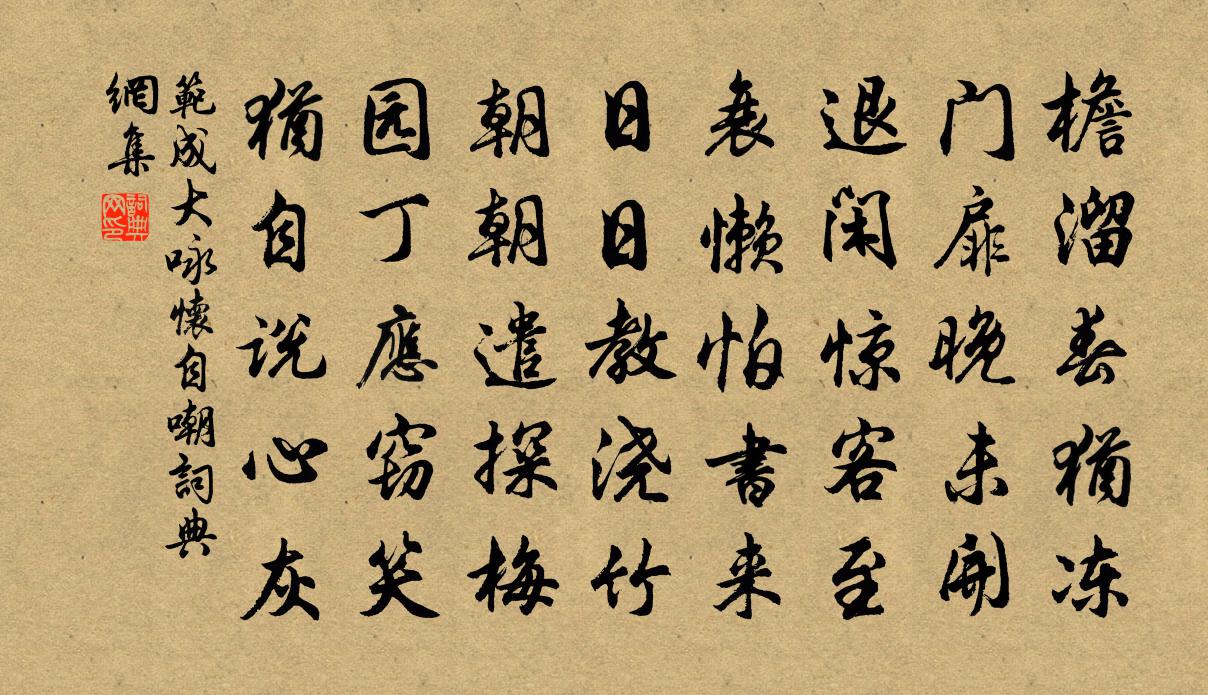 檐溜春犹冻
门扉晚未開
退闲惊客至
衰懒怕書来
日日教浇竹
朝朝遣探梅
园丁應窃笑
犹自说心灰
範成大咏懷自嘲詞典
網集
詞典网印